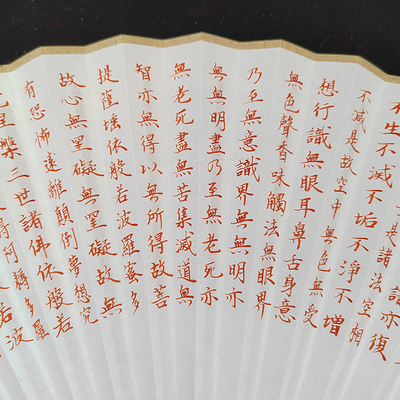 亦復
是諸法空相
生不滅不垢不淨不增
不減是故空中無色無受
想行識無眼耳鼻舌身意
無色聲香味觸法無眼界
乃至無意識界無無明亦
無無明盡乃至無老死亦
無老死盡無苦集滅道無
智亦無得以無所得故菩
提薩埵依般若波羅蜜多
故心無罣礙無罣礙故無
有恐怖遠離顛倒夢想究
涅槃三世諸佛依般若
得阿耨多羅
若波